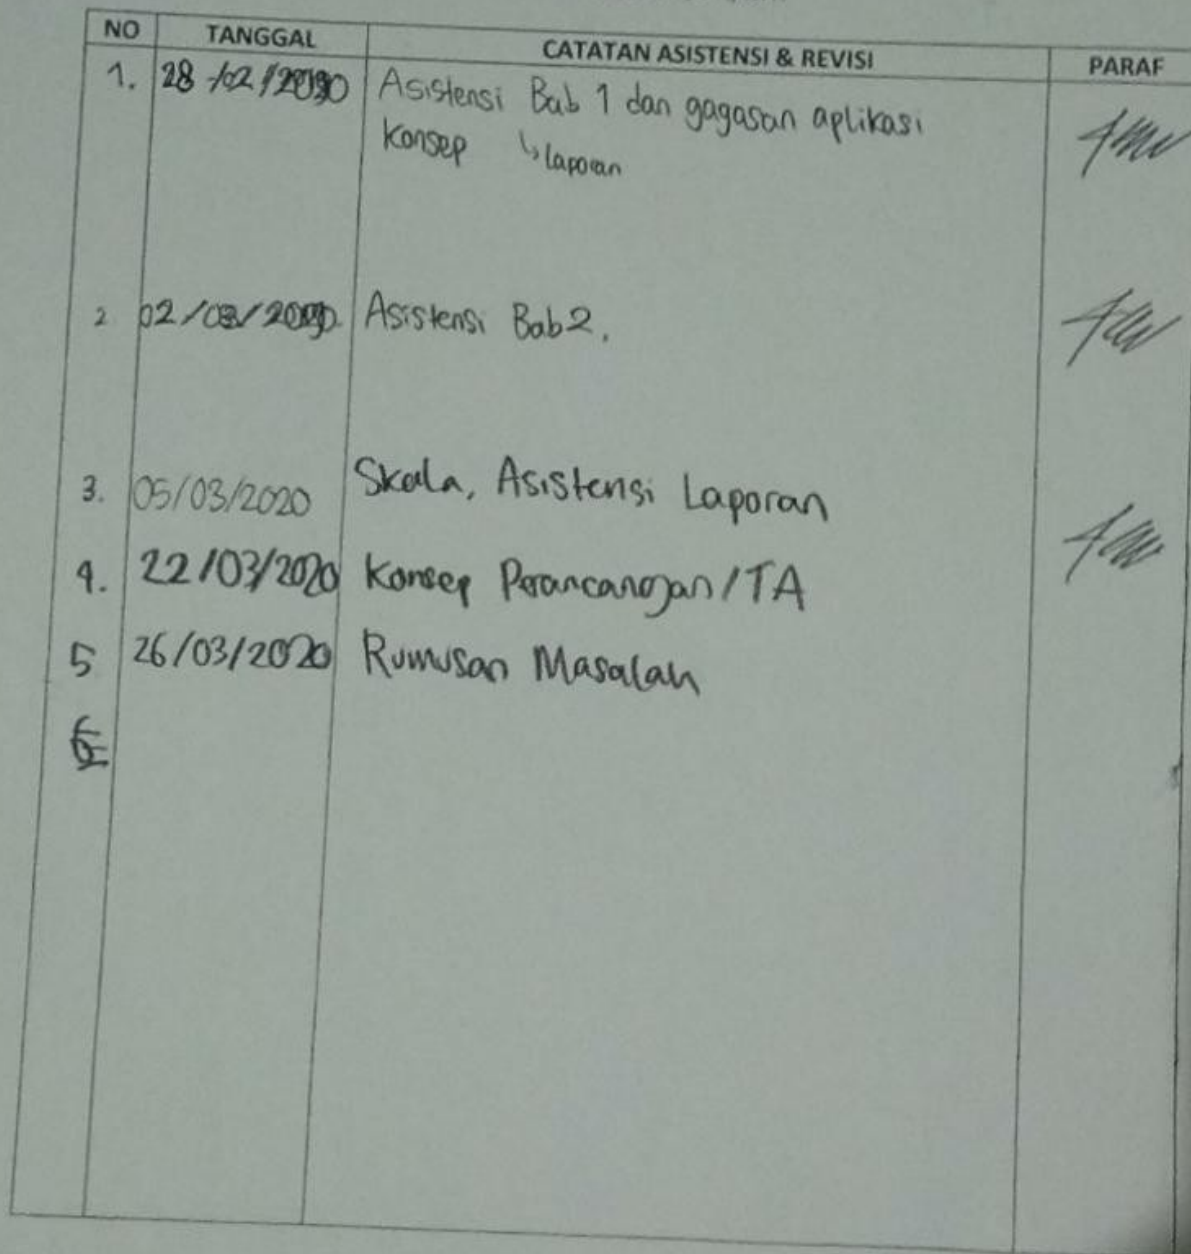 NO TANGGAL CATATAN ASISTENSI & REVISI PARAF
1. 28/02/2020 Asistensi Bab 1 dan gagasan aplikasi
Konsep ↳ laporan
2 02/03/2020 Asistensi Bab 2.
3. 05/03/2020 Skala, Asistensi Laporan
4. 22/03/2020 Konsep Perancangan/TA
5 26/03/2020 Rumusan Masalah